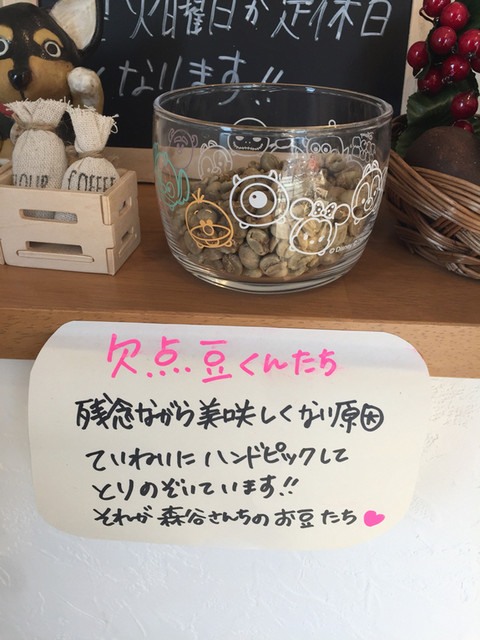 火曜日が定休日
くなります!!
HOUR
COFFEE
© Disney
欠点豆くんたち
残念ながら美味しくない原因
ていねいにハンドピックして
とりのぞいています!!
それが森谷さんちのお豆たち